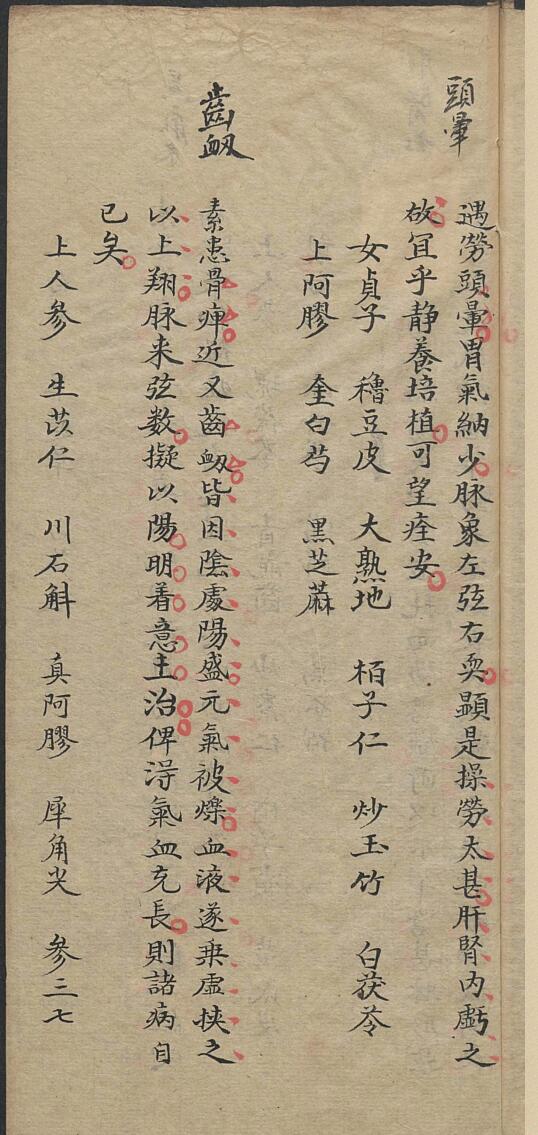 頭暈
遇勞頭暈胃氣納少脉象左弦右耎顯是操勞太甚肝腎内虧之
故冝乎静養培植可望痊安
女貞子 穭豆皮 大熟地 栢子仁 炒玉竹 白茯苓
上阿膠 奎白芍 黑芝蔴
齒衂
素患骨痺近又齒衂皆因陰虗陽盛元氣被爍血液遂乗虚挟之
以上翔脉来弦数擬以陽明着意主治俾淂氣血充長則諸病自
已矣
上人参 生苡仁 川石斛 真阿膠 犀角尖 参三七